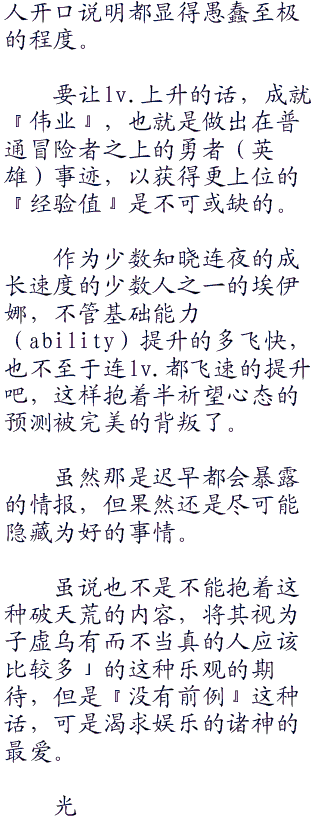 人开口说明都显得愚蠢至极
的程度。
要让lv.上升的话，成就
『伟业』，也就是做出在普
通冒险者之上的勇者（英
雄）事迹，以获得更上位的
『经验值』是不可或缺的。
作为少数知晓连夜的成
长速度的少数人之一的埃伊
娜，不管基础能力
（ability）提升的多飞快，
也不至于连lv.都飞速的提升
吧，这样抱着半祈望心态的
预测被完美的背叛了。
虽然那是迟早都会暴露
的情报，但果然还是尽可能
隐藏为好的事情。
虽说也不是不能抱着这
种破天荒的内容，将其视为
子虚乌有而不当真的人应该
比较多」的这种乐观的期
待，但是『没有前例』这种
话，可是渴求娱乐的诸神的
最爱。
光